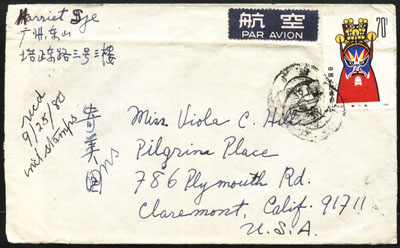 Harriet Sye
广州,东山
塔正东路三号三楼
航空
PAR AVION
70分
中国人民邮政
rec'd
9/25/80
incl stamps
寄美国
Miss Viola C. Hill
Pilgrim Place
786 Plymouth Rd.
Claremont, Calif. 91711
U.S.A.